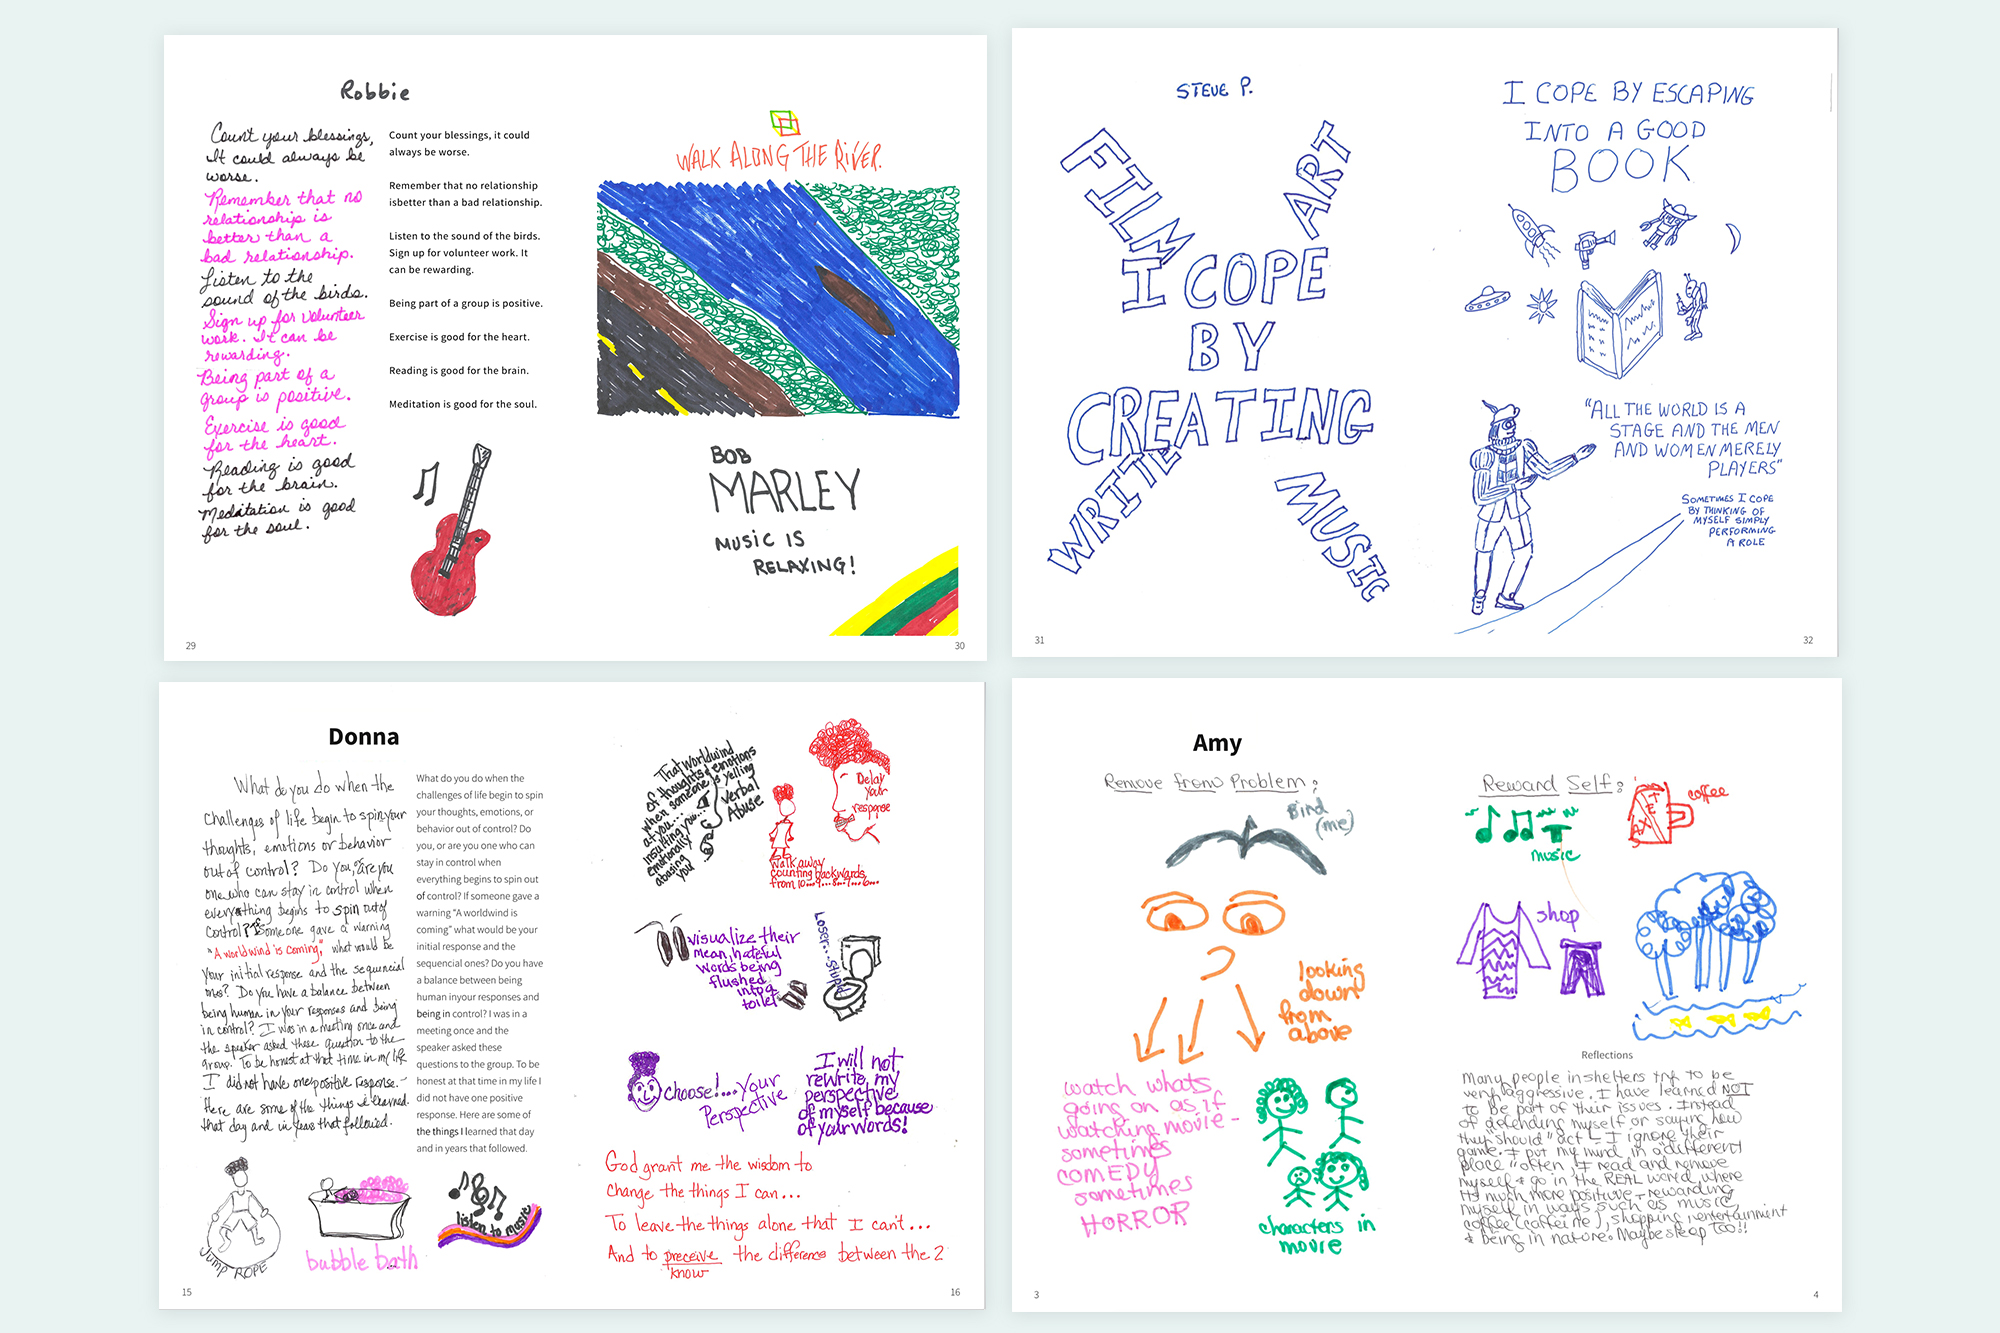 Robbie
Count your blessings,
It could always be
worse.
Remember that no
relationship is
better than a
bad relationship.
Listen to the
sound of the birds.
Sign up for volunteer
work. It can be
rewarding.
Being part of a
group is positive.
Exercise is good
for the heart.
Reading is good
for the brain.
Meditation is good
for the soul.
Count your blessings, it could
always be worse.
Remember that no relationship
isbetter than a bad relationship.
Listen to the sound of the birds.
Sign up for volunteer work. It
can be rewarding.
Being part of a group is positive.
Exercise is good for the heart.
Reading is good for the brain.
Meditation is good for the soul.
29
WALK ALONG THE RIVER.
BOB
MARLEY
MUSIC IS
RELAXING!
30
STEVE P.
FILM
ART
I COPE
BY
CREATING
WRITE
MUSIC
31
I COPE BY ESCAPING
INTO A GOOD
BOOK
"ALL THE WORLD IS A
STAGE AND THE MEN
AND WOMEN MERELY
PLAYERS"
SOMETIMES I COPE
BY THINKING OF
MYSELF SIMPLY
PERFORMING
A ROLE
32
Donna
What do you do when the
challenges of life begin to spin your
thoughts, emotions or behavior
out of control? Do you, or are you
one who can stay in control when
everything begins to spin out of
control? If someone gave a warning
"A worldwind is coming," what would be
your initial response and the sequencial
ones? Do you have a balance between
being human in your responses and being
in control? I was in a meeting once and
the speaker asked these question to the
group. To be honest at that time in my life
I did not have one positive response.
Here are some of the things I learned
that day and in years that followed.
What do you do when the
challenges of life begin to spin
your thoughts, emotions, or
behavior out of control? Do
you, or are you one who can
stay in control when
everything begins to spin out
of control? If someone gave a
warning "A worldwind is
coming" what would be your
initial response and the
sequencial ones? Do you have
a balance between being
human inyour responses and
being in control? I was in a
meeting once and the
speaker asked these
questions to the group. To be
honest at that time in my life I
did not have one positive
response. Here are some of
the things I learned that day
and in years that followed.
Jump ROPE
bubble bath
listen to music
15
That worldwind
of thoughts & emotions
when someone is yelling
at you...
insulting you...
emotionally
abusing
you
Verbal
Abuse
Delay
your
response
walk away
counting backwards
from 10...9...8...7...6...
visualize their
mean, hateful
words being
flushed
into a
toilet
Loser... stupid
choose!...your
Perspective
I will not
rewrite my
perspective
of myself because
of your words!
God grant me the wisdom to
change the things I can...
To leave the things alone that I can't...
And to preceive the difference between the 2
"know
16
Amy
Remove from Problem:
Bird
(me)
looking
down
from
above
watch whats
going on as if
watching movie -
sometimes
COMEDY
sometimes
HORROR
characters in
movie
3
Reward Self:
music
coffee
shop
Reflections
Many people in shelters try to be
very aggressive. I have learned NOT
to be part of their issues. Instead
of defending myself or saying how
they "should" act - I ignore their
game. I put my mind in a "different
place" often. I read and remove
myself & go in the REAL world, where
its much more positive - rewarding
myself in ways such as music,
coffee (caffeine), shopping, entertainment
& being in nature. Maybe sleep too!!
4